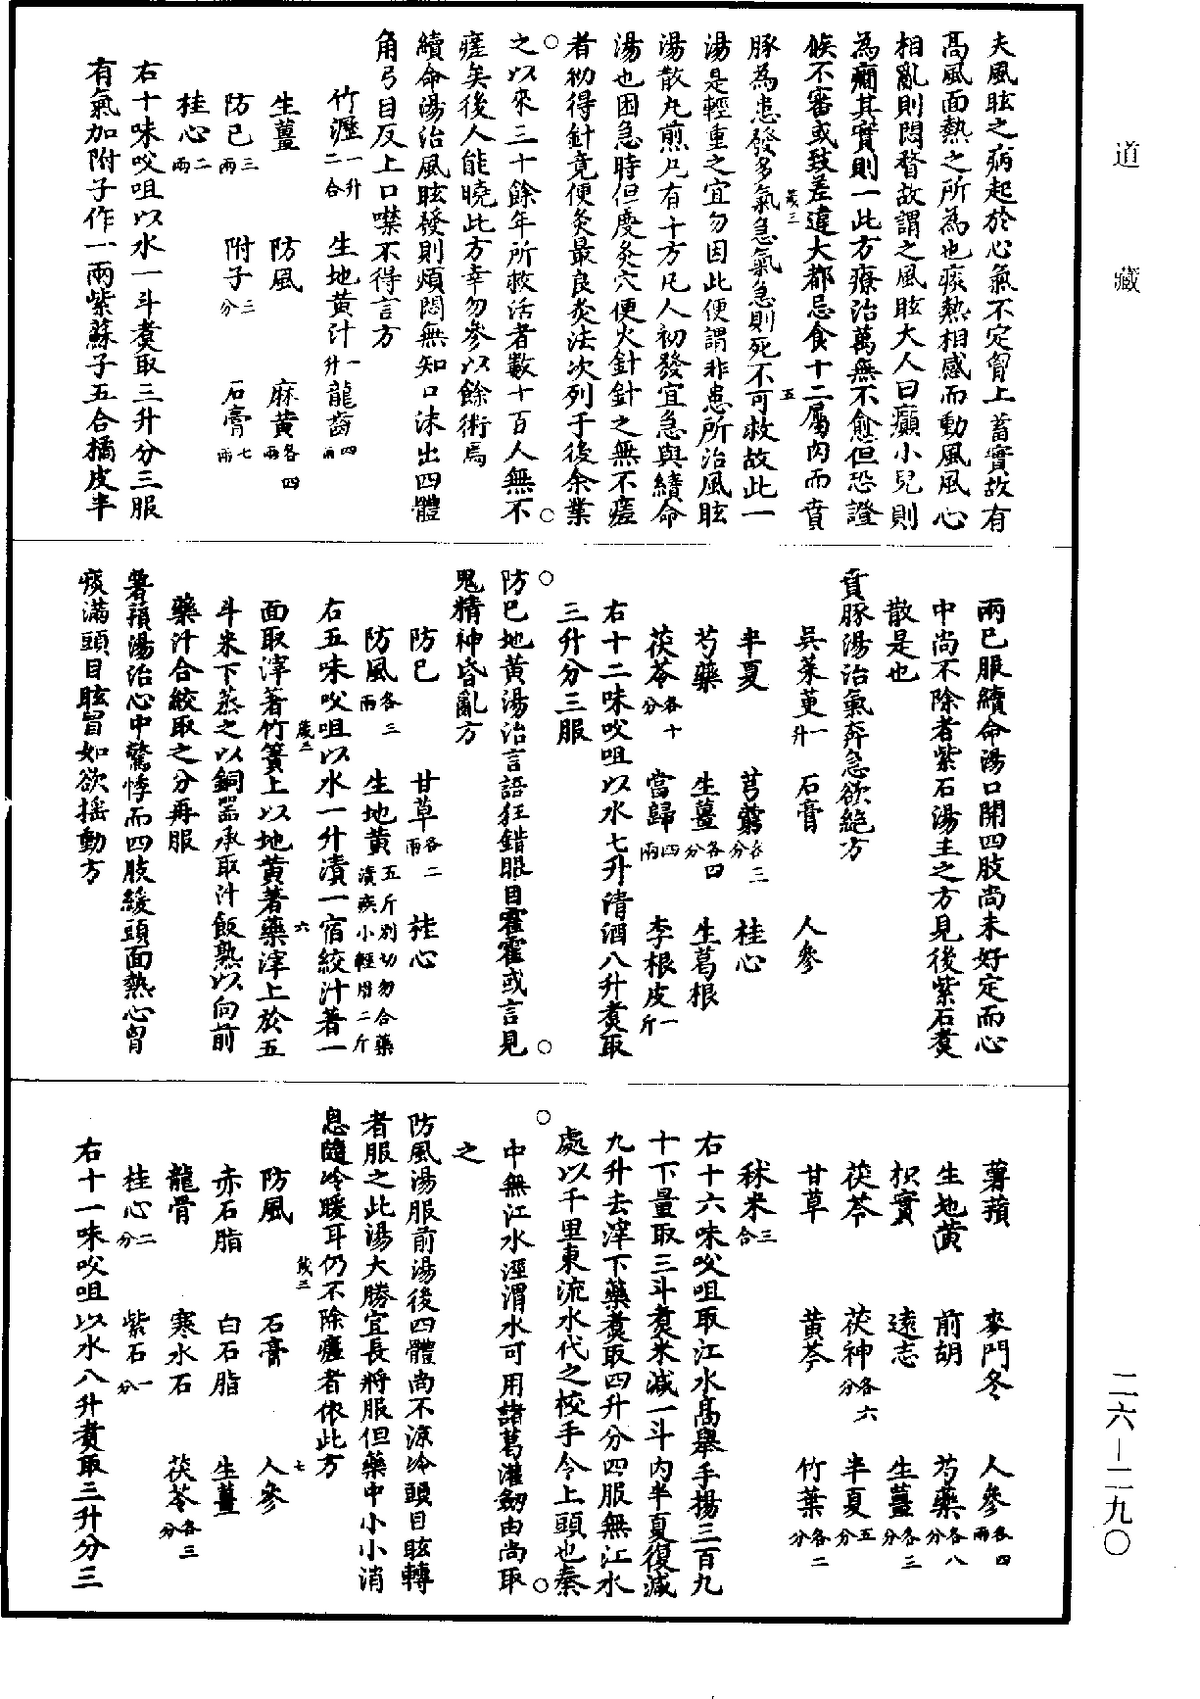 道藏
夫風眩之病起於心氣不定胷上蓄實故有
高風面熱之所為也痰熱相感而動風風心
相亂則悶瞀故謂之風眩大人曰癲小兒則
為癇其實則一此方療治萬無不愈但恐證
候不審或致差違大都忌食十二屬肉而賁
豚為患發多氣急氣急則死不可救故此一
湯是輕重之宜勿因此便謂非患所治風眩
湯散丸煎凡有十方凡人初發宜急與續命
湯也困急時但度灸穴便火針針之無不瘥
者初得針竟便灸最良灸法次列于後余業
之以來三十餘年所救活者數十百人無不
瘥矣後人能曉此方幸勿參以餘術焉
續命湯治風眩發則煩悶無知口沫出四體
角弓目反上口噤不得言方
竹瀝一升二合 生地黄汁一升 龍齒四兩
生薑 防風 麻黄各四兩
防已三兩 附子二分 石膏七兩
桂心二兩
右十味㕮咀以水一斗煑取三升分三服
有氣加附子作一兩紫蘇子五合橘皮半
兩已服續命湯口開四肢尚未好定而心
中尚不除者紫石湯主之方見後紫石煑
散是也
賁豚湯治氣奔急欲絶方
吳茱萸一升 石膏 人參
半夏 芎藭各三分 桂心
芍藥 生薑各四分 生葛根
茯苓各十分 當歸四兩 李根皮一斤
右十二味㕮咀以水七升清酒八升煑取
三升分三服
防已地黄湯治言語狂錯眼目霍霍或言見
鬼精神昏亂方
防已 甘草各二兩 桂心
防風各三兩 生地黄五斤别切勿合藥漬疾小輕用二斤
右五味㕮咀以水一升漬一宿絞汁著一
面取滓著竹簀上以地黄著藥滓上於五
斗米下蒸之以銅器承取汁飯熟以向前
藥汁合絞取之分再服
薯蕷湯治心中驚悸而四肢緩頭面熱心胷
痰滿頭目眩冒如欲揺動方
薯蕷 麥門冬 人參各四兩
生地黄 前胡 芍藥各八分
枳實 逺志 生薑各三分
茯苓 茯神各六分 半夏五分
甘草 黄芩 竹葉各二分
秫米三合
右十六味㕮咀取江水高舉手揚三百九
十下量取三斗煑米減一斗内半夏復減
九升去滓下藥煑取四升分四服無江水
處以千里東流水代之校手令上頭也秦
中無江水涇渭水可用諸葛灌劒由尚取
之
防風湯服前湯後四體尚不涼冷頭目眩轉
者服之此湯大勝宜長將服但藥中小小消
息隨冷暖耳仍不除瘥者依此方
防風 石膏 人參
赤石脂 白石脂 生薑
龍骨 寒水石 茯苓各三分
桂心二分 紫石一分
右十一味㕮咀以水八升煑取三升分三
二六—二九〇